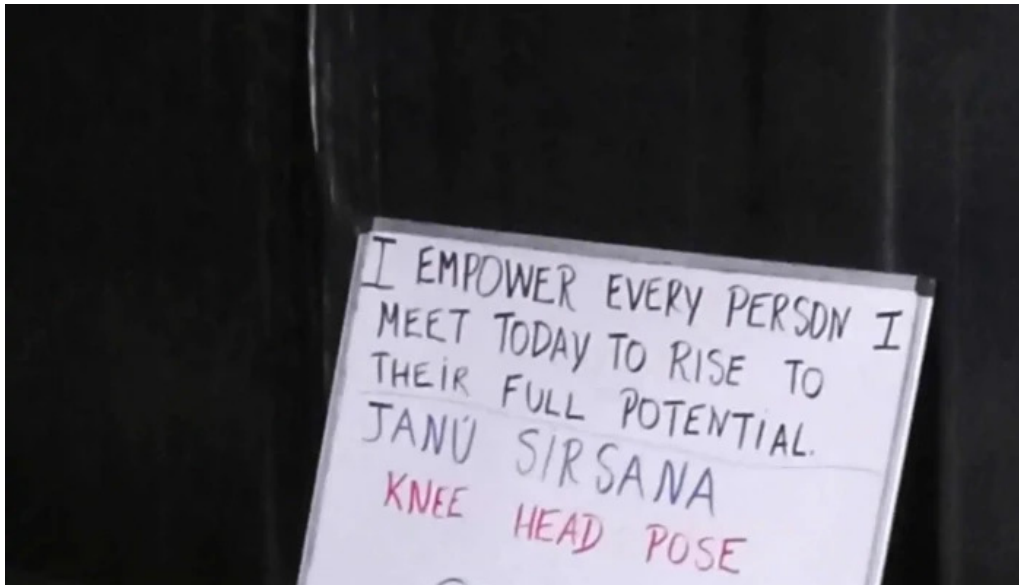 I EMPOWER EVERY PERSON I
MEET TODAY TO RISE TO
THEIR FULL POTENTIAL.
JANÚ SIRSANA
KNEE HEAD POSE